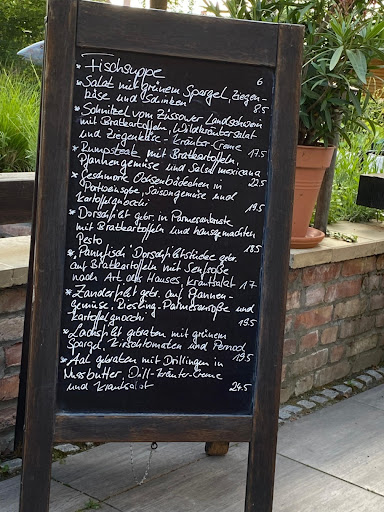 * Fischsuppe 6
* Salat mit grünem Spargel, Ziegen-
käse und Schinken 8.5
* Schnitzel vom Züssower Landschwein
mit Bratkartoffeln, Wildkräutersalat
und Ziegenkäse - Kräuter-Creme 17.5
* Rumpsteak mit Bratkartoffeln,
Pfannengemüse und Salsa mexicana 22.5
* Geschmorte Ochsenbäckchen in
Portweinsoße, Saisongemüse und
Kartoffelgnocchi 19.5
* Dorschfilet gebr. in Parmesankruste
mit Bratkartoffeln und hausgemachten
Pesto 18.5
* "Pannfisch" Dorschfiletstücke gebr.
auf Bratkartoffeln mit Senfsoße
nach Art des Hauses, Krautsalat 17
* Zanderfilet gebr. auf Pfannen-
gemüse, Riesling-Parmesansoße und
Kartoffelgnocchi 19.5
* Lachsfilet gebraten mit grünem
Spargel, Kirschtomaten und Pernod 19.5
* Aal gebraten mit Drillingen in
Nussbutter, Dill-Kräuter-Creme
und Krautsalat 24.5